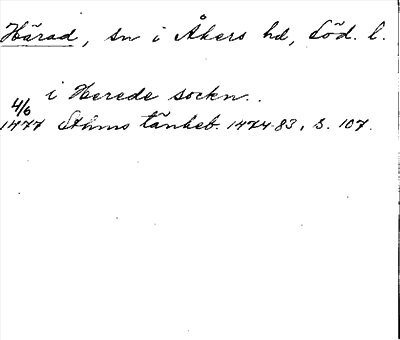 Härad, sn i Åkers hd, Söd. l.
i Herede sockn.
4/6
1477 Sthms tänkeb. 1474-83, s. 107.